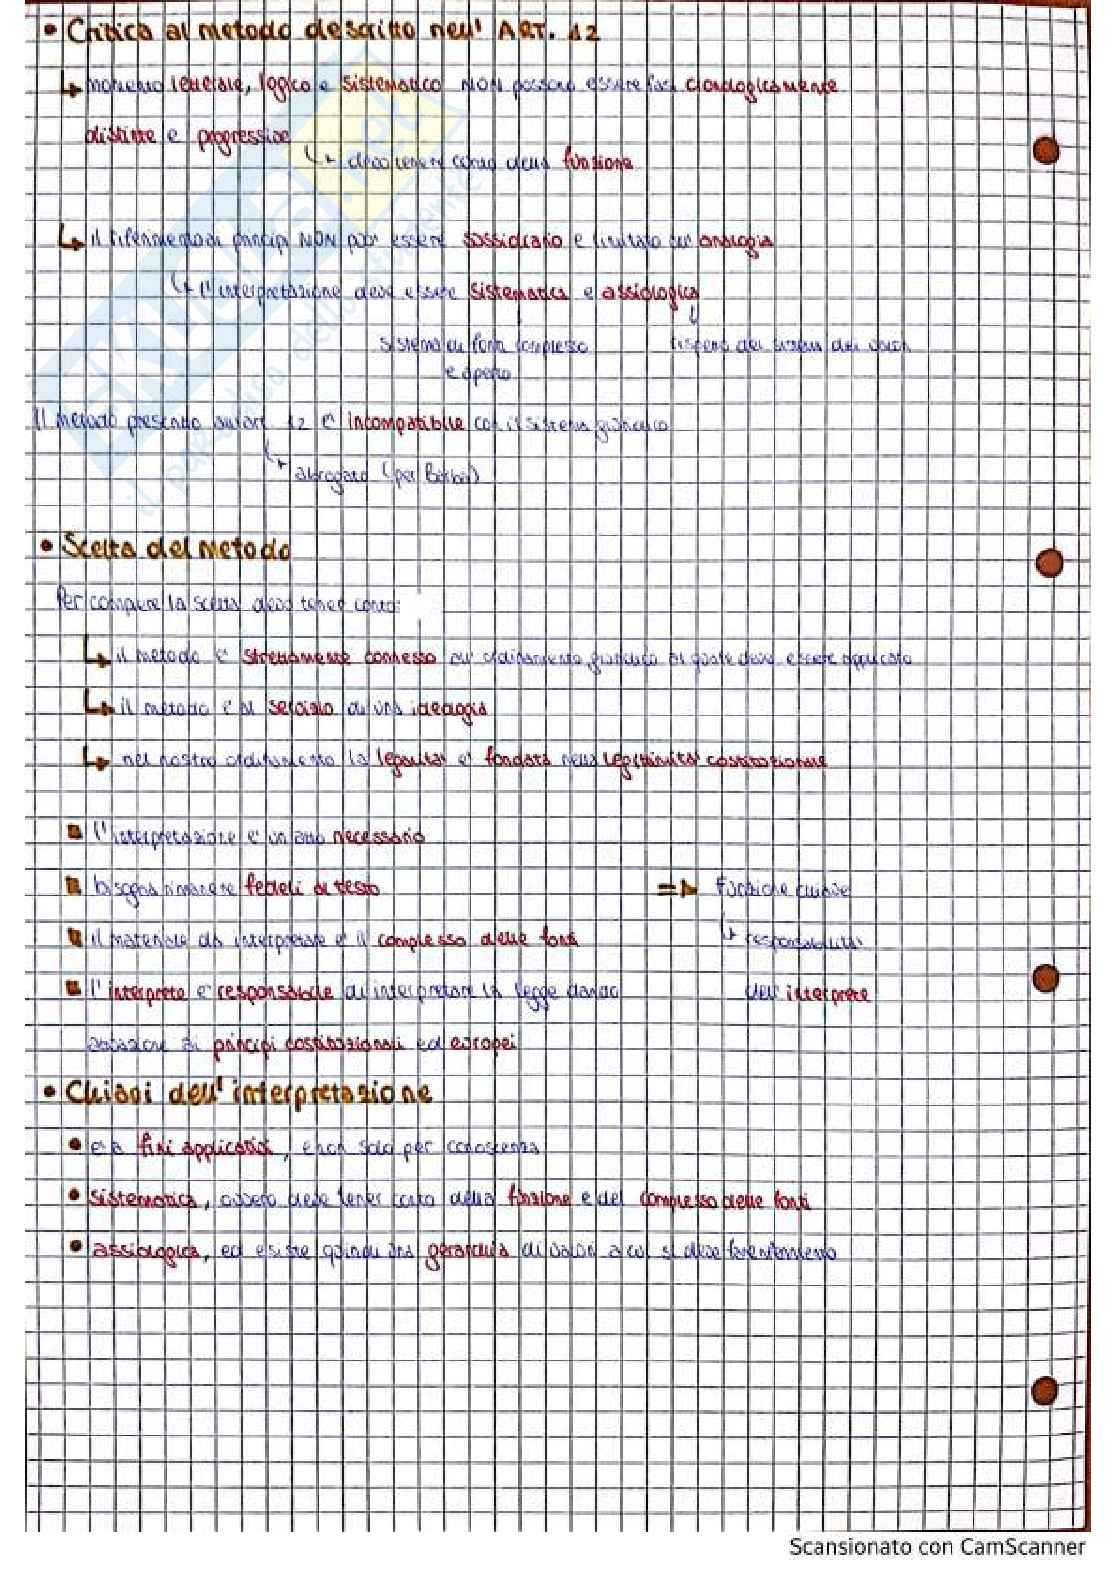 • Critica al metodo descritto nell' ART. 12
↳ momento letterale, logico e sistematico NON possono essere fasi cronologicamente
distinte e progressive
↳ devo tenere conto della funzione
↳ il riferimento ai principi NON può essere sussidiario e limitato all' analogia
↳ l'interpretazione deve essere sistematica e assiologica
sistema di fonti complesso rispetto dei valori
e aperto
Il metodo presentato all'art. 12 è incompatibile con il sistema giuridico
↳ abrogato (per
• Scelta del metodo
Per compiere la scelta devo tener conto:
↳ il metodo è strettamente connesso all' ordinamento giuridico al quale deve essere applicato
↳ il metodo è al servizio di una ideologia
↳ nel nostro ordinamento la legalità è fondata nella legittimità costituzionale
▪ l'interpretazione è un atto necessario
▪ bisogna rimanere fedeli al testo => Funzione
▪ il materiale da interpretare è il complesso delle fonti ↳ responsabilità
▪ l' interprete è responsabile di interpretare la legge dando dell' interprete
attuazione ai principi costituzionali ed europei
• Chiavi dell' interpretazione
• è a fini applicativi, e non solo per conoscenza
• sistematica, ovvero deve tener conto della funzione e del complesso delle fonti
• assiologica, ed esiste quindi una gerarchia di valori a cui si deve fare riferimento
Scansionato con CamScanner